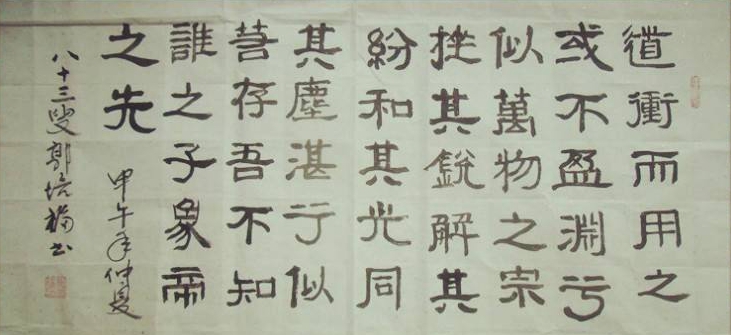 道衝而用之
或不盈淵兮
似萬物之宗
挫其銳解其
紛和其光同
其塵湛兮似
若存吾不知
誰之子象帝
之先
甲午年仲夏
八十三叟郭培福书